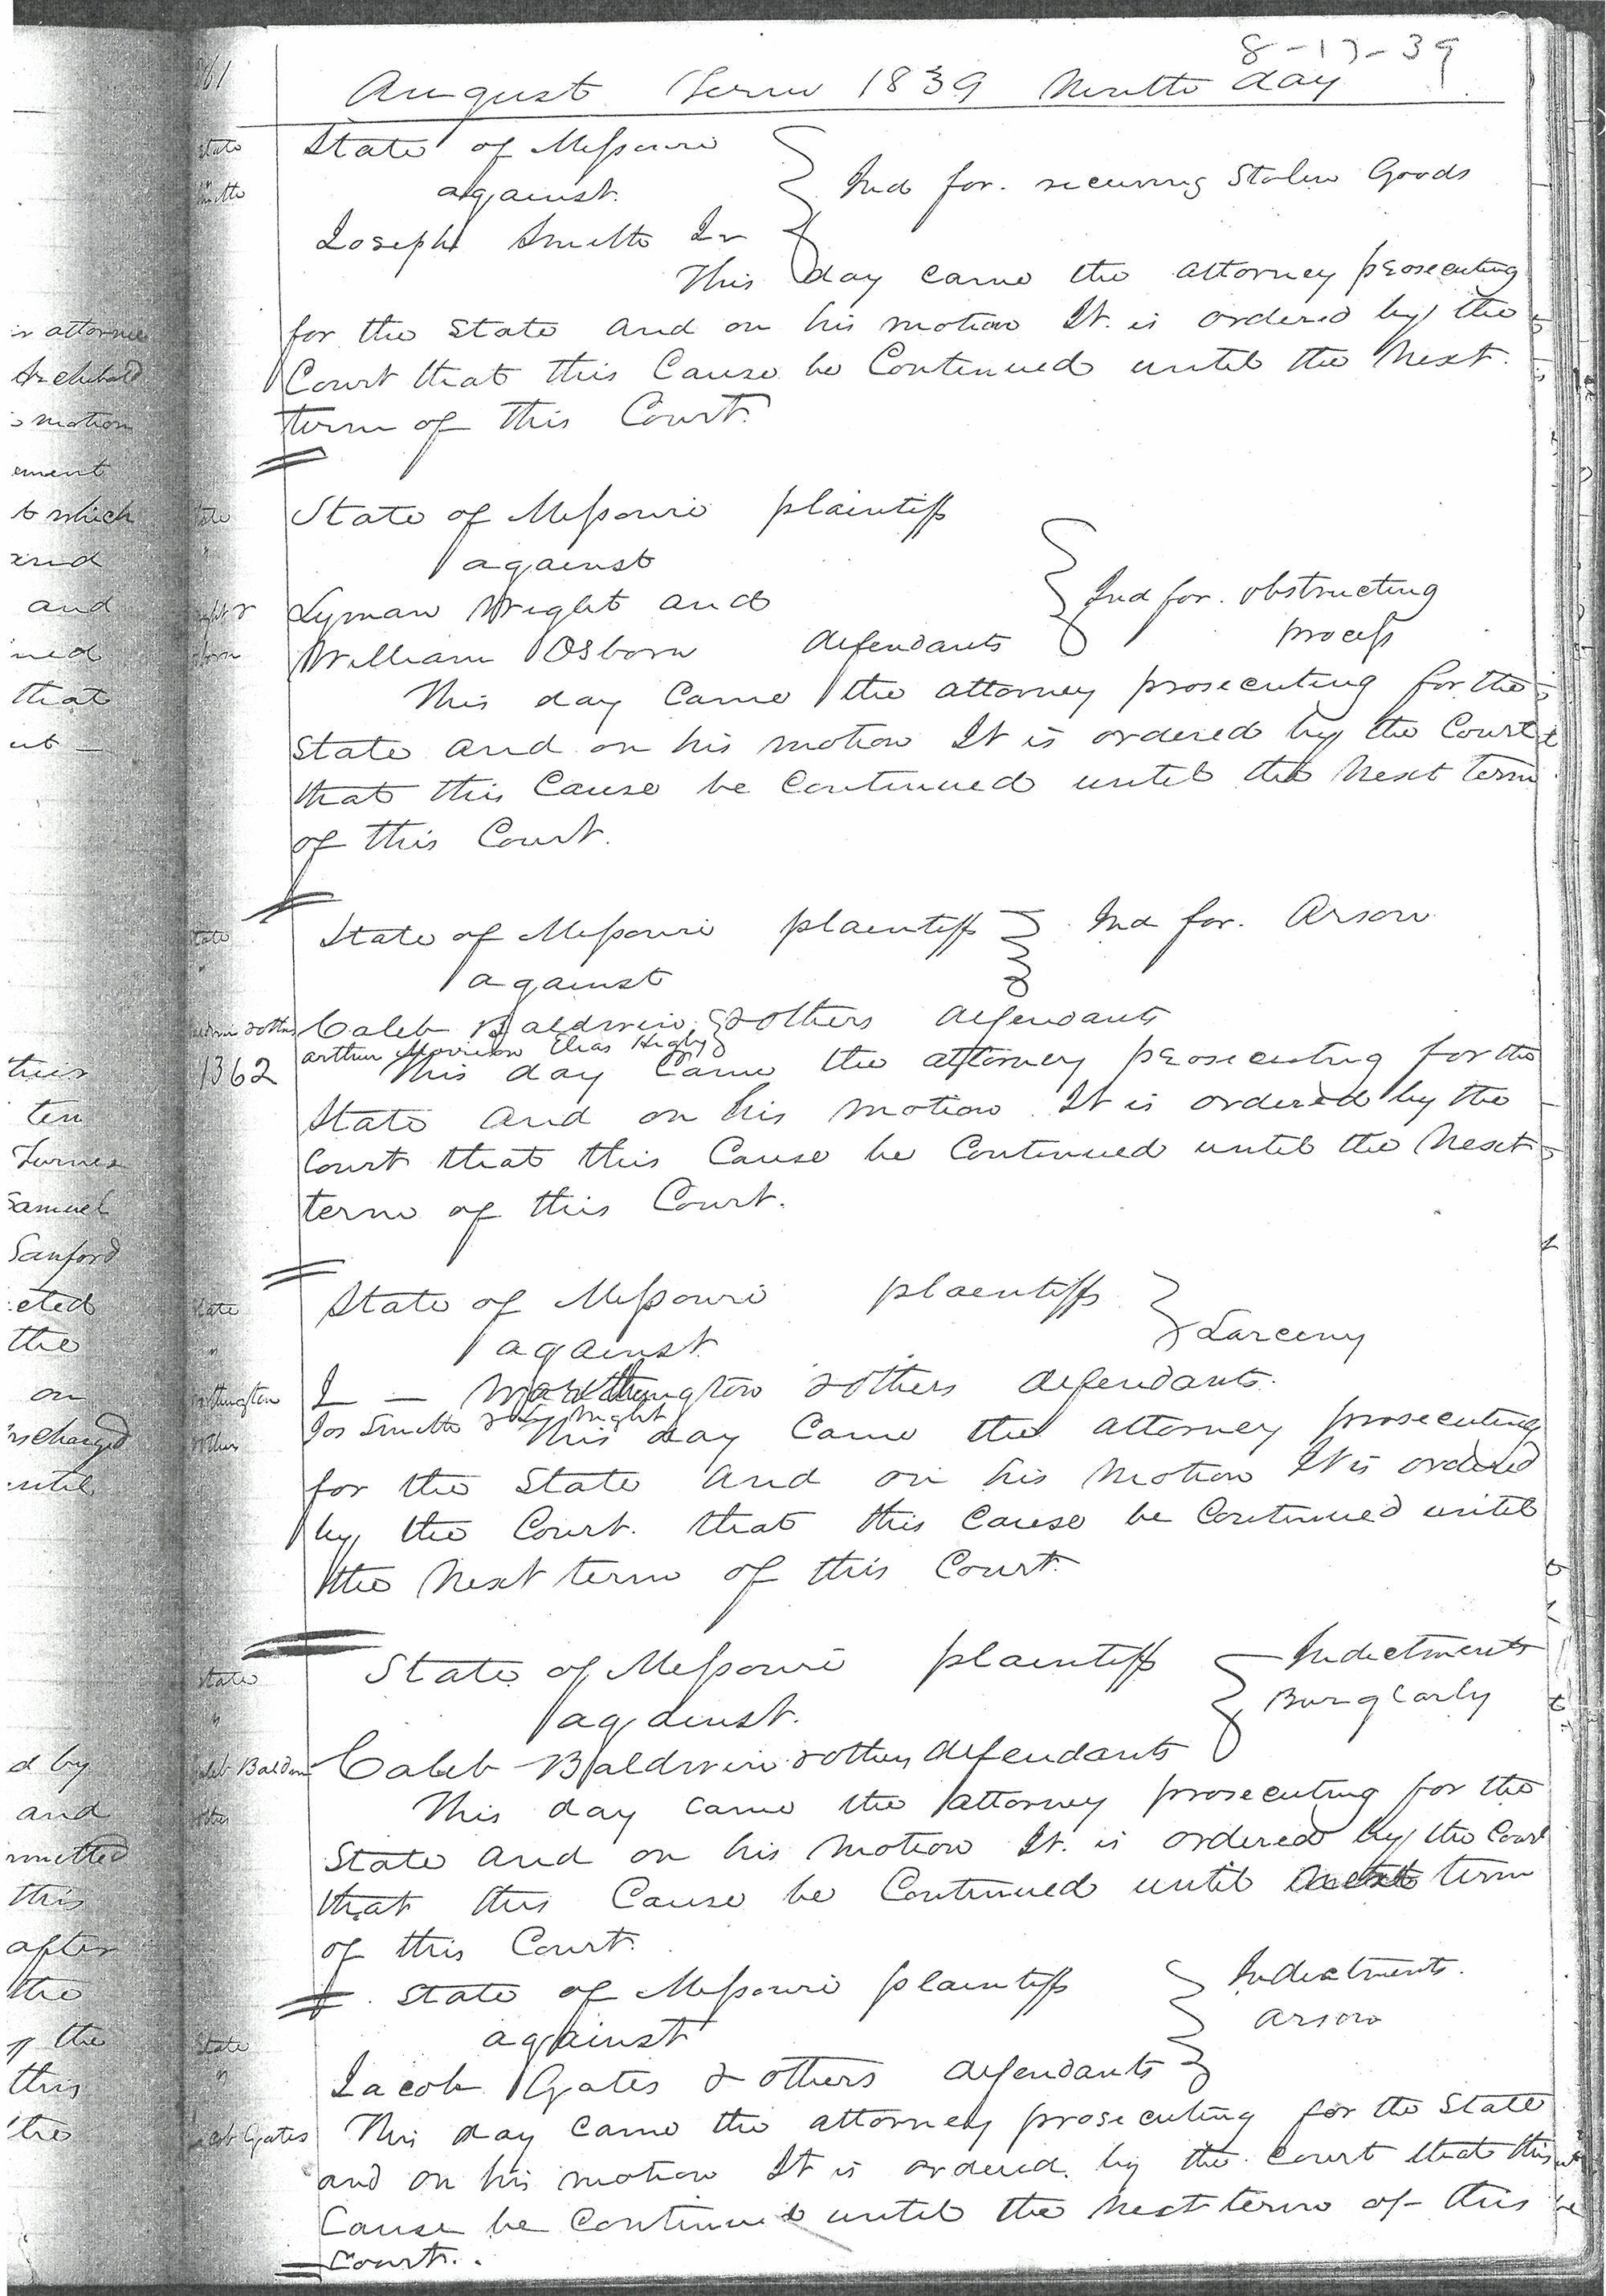 8-17-39
61
August Term 1839 Ninth day
State of Missouri
against
Ind for. receiving Stolen Goods
Joseph Smith Jr
This day came the attorney prosecuting
for the State and on his motion It is ordered by the
Court that this Cause be Continued until the Next
term of this Court.
State of Missouri plaintiff
against
Lyman Wright and
Ind for. obstructing
William Osborn defendants
process
This day Came the attorney prosecuting for the
State and on his motion It is ordered by the Court
that this Cause be Continued until the Next term
of this Court.
State of Missouri plaintiff
Ind for. Arson
against
Caleb Baldwin & others defendants
arthur Morrison Elias Higby
1362
This day Came the attorney prosecuting for the
State and on his motion It is ordered by the
Court that this Cause be Continued until the Next
term of this Court.
State of Missouri plaintiff
Larceny
against
J — Worthington & others defendants.
Jos Smith & Ly Wright
This day Came the attorney prosecuting
for the State and on his Motion It is ordered
by the Court. that this Cause be Continued until
the Next term of this Court.
State of Missouri plaintiff
Indictments
Burglarly
against.
Caleb Baldwin & others defendants
This day came the attorney prosecuting for the
State and on his Motion It. is ordered by the Court
that this Cause be Continued until Next term
of this Court.
State of Missouri plaintiff
Indictments.
against
arson
Jacob Gates & others defendants
This day Came the attorney prosecuting for the State
and on his motion It is ordered. by the Court that this
Cause be Continued until the Next term of this
Court.
r attorney
Archibald
motion
ement
to which
and
and
that
this
ten
Turner
Samuel
Sanford
the
on
until
d by
and
this
after
the
the
this
the
State
Smith
State
State
State
others
State
Caleb Baldwin
others
State
Jacob Gates